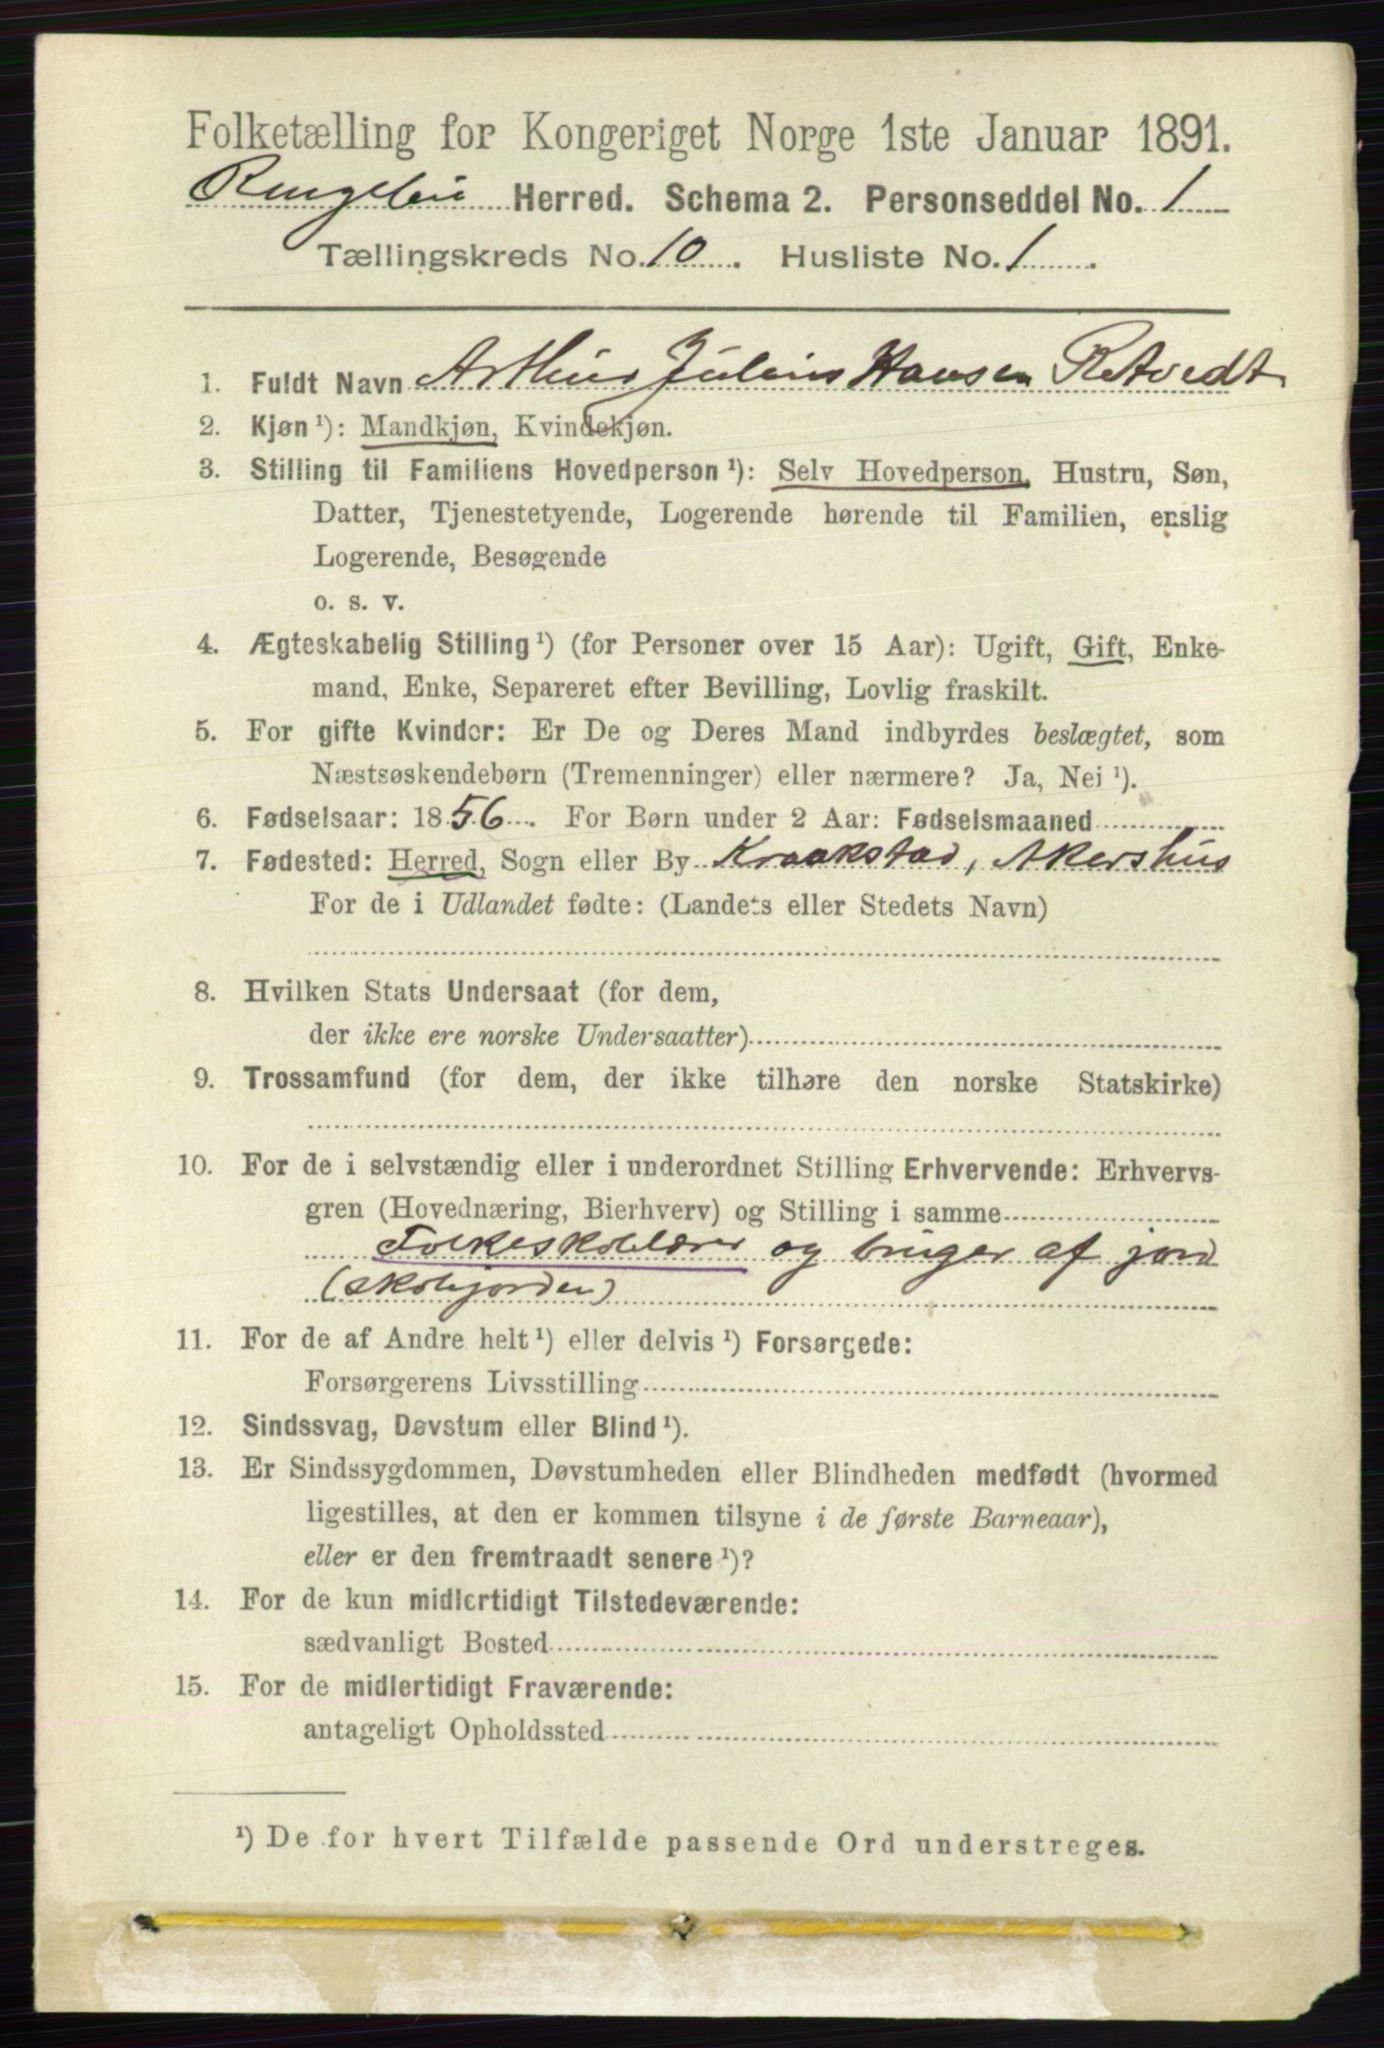 Folketælling for Kongeriget Norge 1ste Januar 1891.
Ringebu Herred. Schema 2. Personseddel No. 1
Tællingskreds No. 10. Husliste No. 1.
1. Fuldt Navn Arthur Julius Hansen Retvedt
2. Kjøn ¹): Mandkjøn, Kvindekjøn.
3. Stilling til Familiens Hovedperson ¹): Selv Hovedperson, Hustru, Søn,
Datter, Tjenestetyende, Logerende hørende til Familien, enslig
Logerende, Besøgende
o. s. v.
4. Ægteskabelig Stilling ¹) (for Personer over 15 Aar): Ugift, Gift, Enke-
mand, Enke, Separeret efter Bevilling, Lovlig fraskilt.
5. For gifte Kvinder: Er De og Deres Mand indbyrdes beslægtet, som
Næstsøskendebørn (Tremenninger) eller nærmere? Ja, Nei ¹).
6. Fødselsaar: 1856. For Børn under 2 Aar: Fødselsmaaned
7. Fødested: Herred, Sogn eller By Kraakstad, Akershus
For de i Udlandet fødte: (Landets eller Stedets Navn)
8. Hvilken Stats Undersaat (for dem,
der ikke ere norske Undersaatter)
9. Trossamfund (for dem, der ikke tilhøre den norske Statskirke)
10. For de i selvstændig eller i underordnet Stilling Erhvervende: Erhvervs-
gren (Hovednæring, Bierhverv) og Stilling i samme
Folkeskolelærer og bruger af jord
(skolejorden)
11. For de af Andre helt ¹) eller delvis ¹) Forsørgede:
Forsørgerens Livsstilling
12. Sindssvag, Døvstum eller Blind ¹).
13. Er Sindssygdommen, Døvstumheden eller Blindheden medfødt (hvormed
ligestilles, at den er kommen tilsyne i de første Barneaar),
eller er den fremtraadt senere ¹)?
14. For de kun midlertidigt Tilstedeværende:
sædvanligt Bosted
15. For de midlertidigt Fraværende:
antageligt Opholdssted
¹) De for hvert Tilfælde passende Ord understreges.